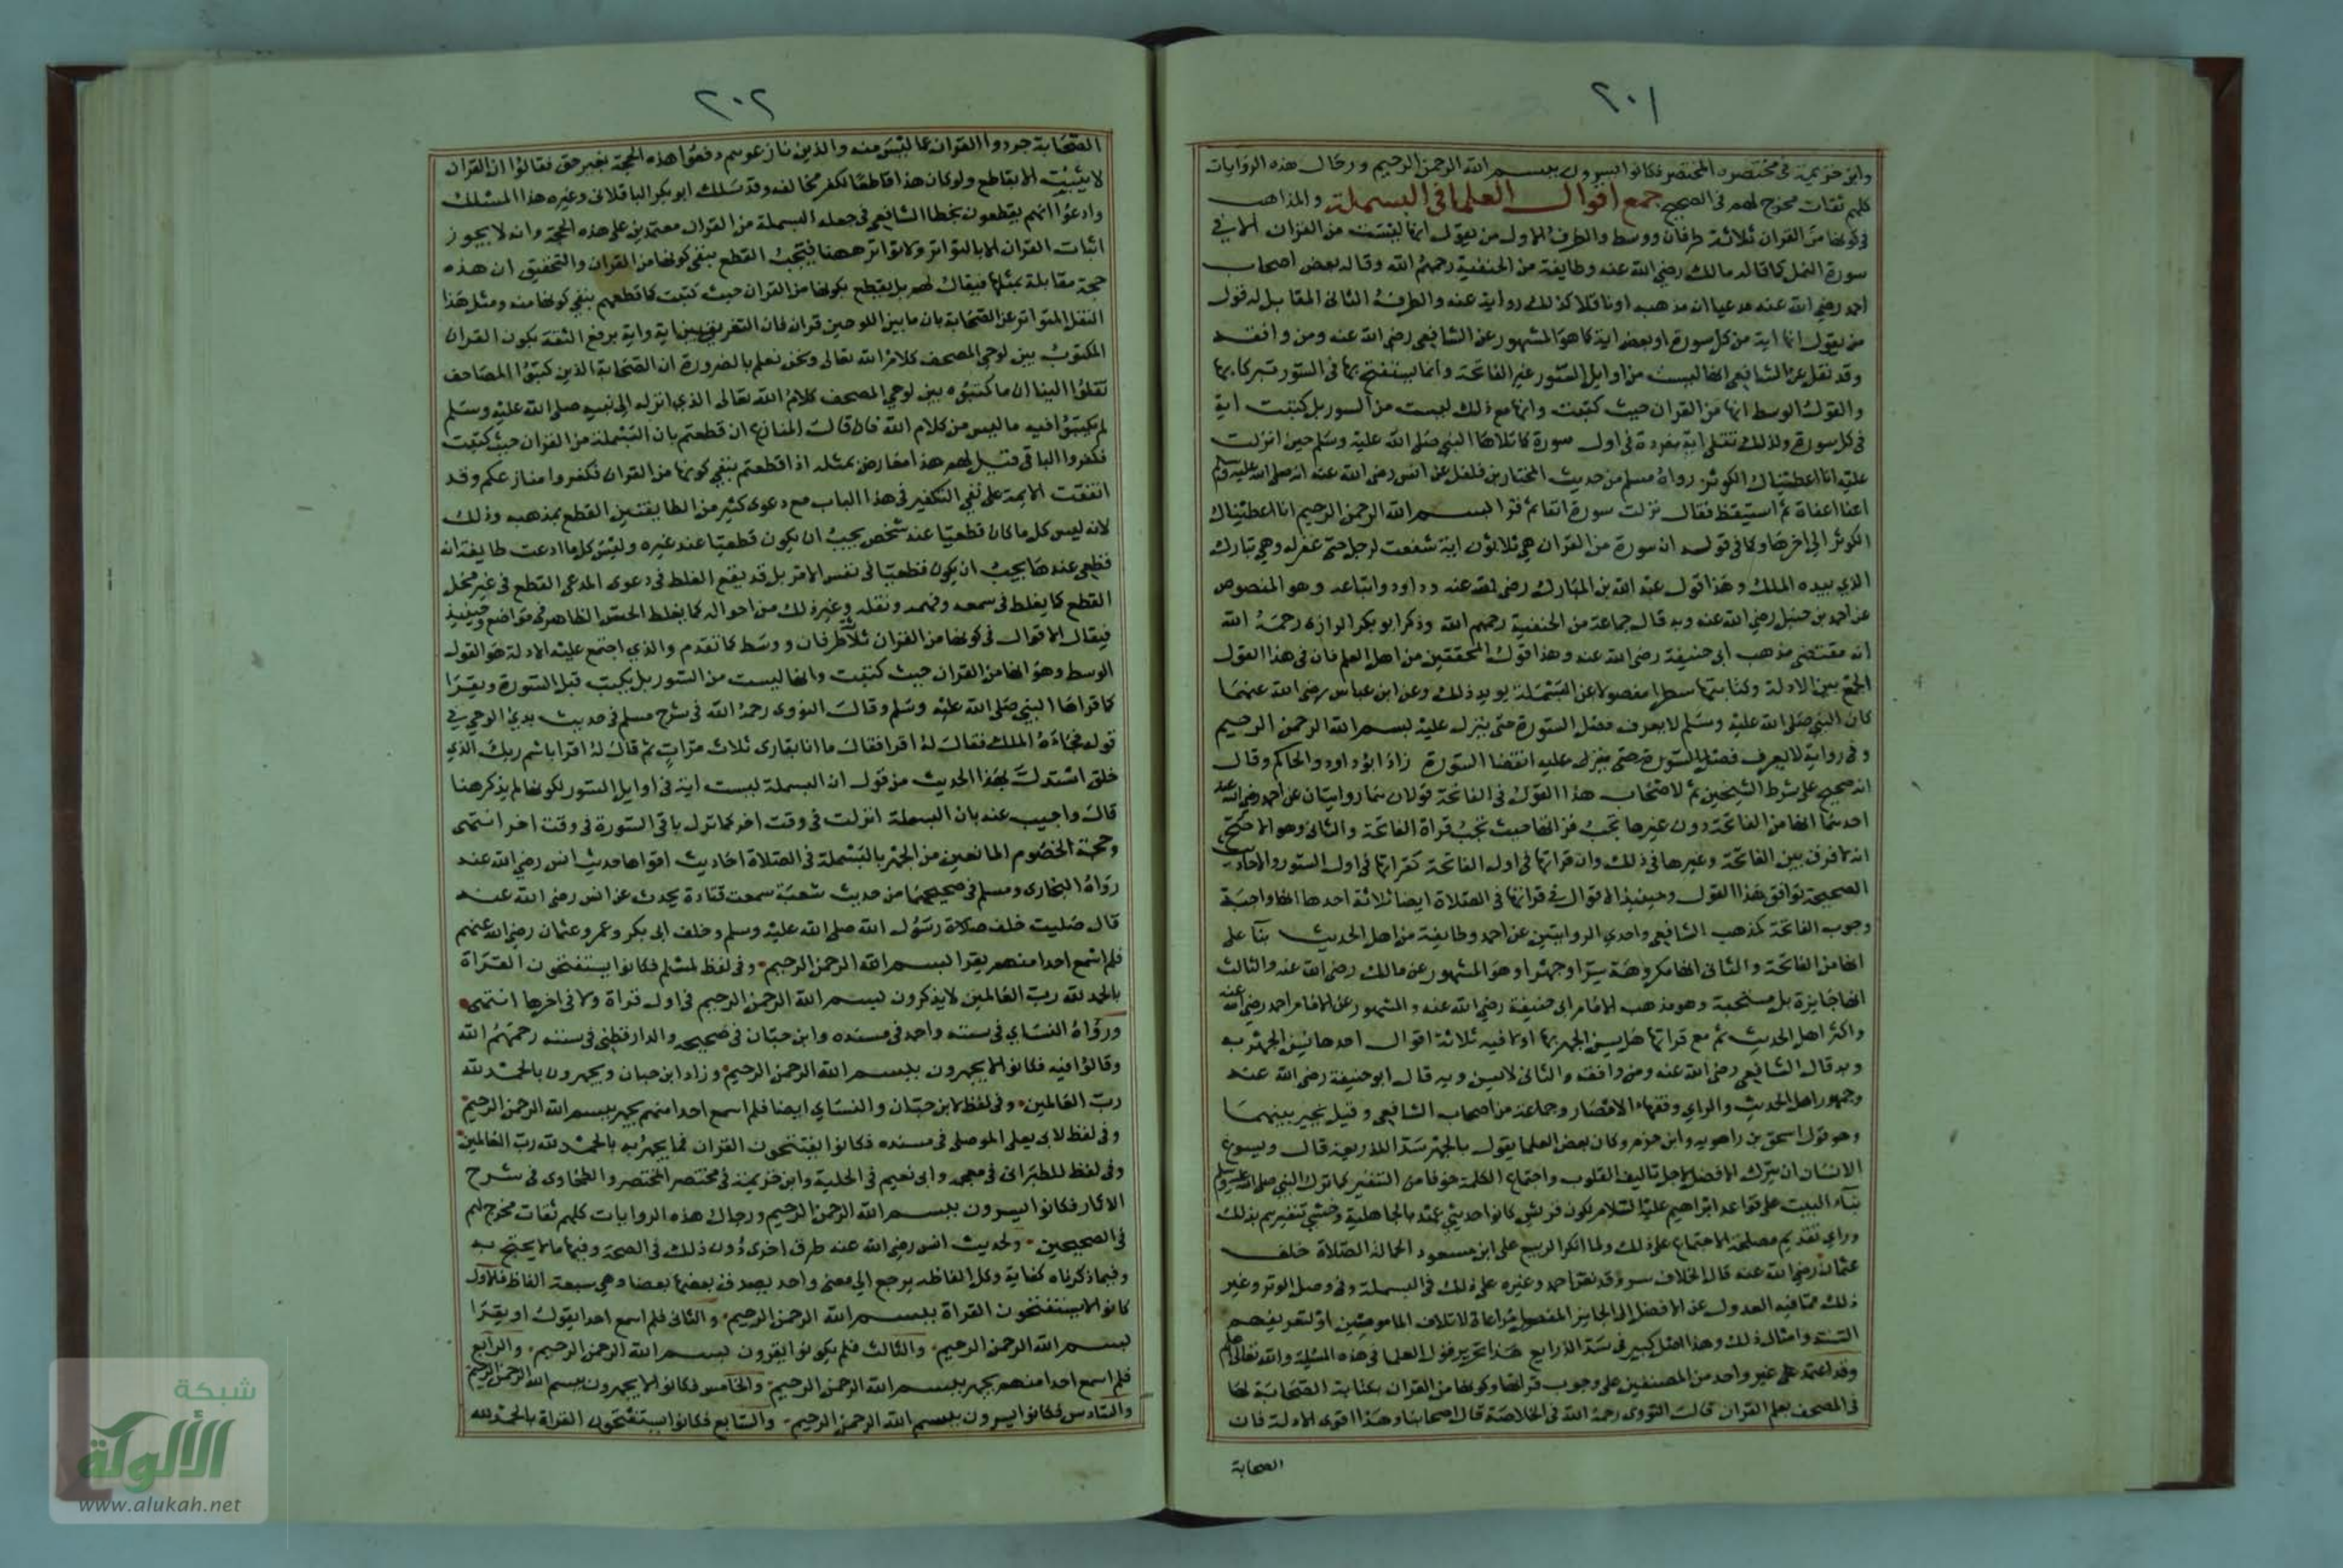 ٢٠١
وابن خزيمة في مختصره المختصر فكانوا يسرون ببسم الله الرحمن الرحيم ورجال هذه الروايات
كلهم ثقات مخرج لهم في الصحيح جمع اقوال العلما في البسملة والمذاهب
في كونها من القران ثلاثة طرفان ووسط والطرف الاول من يقول انها ليست من القران الا في
سورة النمل كما قاله مالك رضي الله عنه وطايفة من الحنفية رحمهم الله وقاله بعض اصحاب
احمد رضي الله عنه مدعيا ان مذهبه او ناقلا كذلك رواية عنه والطرف الثاني المقابل له قول
من يقول انها اية من كل سورة او بعض اية كما هو المشهور عن الشافعي رضي الله عنه ومن وافقه
وقد نقل عن الشافعي انها ليست من اوايل السور غير الفاتحة وانما يستفتح بها في السور تبركا بها
والقول الوسط انها من القران حيث كتبت وانها مع ذلك ليست من السور بل كتبت اية
في كل سورة ولذلك تتلى اية مفردة في اول سورة كما تلاها النبي صلى الله عليه وسلم حين انزلت
عليه انا اعطيناك الكوثر رواه مسلم من حديث المختار بن فلفل عن انس رضي الله عنه انه صلى الله عليه وسلم
اغفا اغفاة ثم استيقظ فقال نزلت سورة انفا ثم قرا بسم الله الرحمن الرحيم انا اعطيناك
الكوثر الى اخرها وكما في قوله ان سورة من القران هي ثلاثون اية شفعت لرجل حتى غفر له وهي تبارك
الذي بيده الملك وهذا قول عبد الله بن المبارك رضي الله عنه وداود واتباعه وهو المنصوص
عن احمد بن حنبل رضي الله عنه وبه قال جماعة من الحنفية رحمهم الله وذكر ابو بكر الرازي رحمه الله
انه مقتضى مذهب ابي حنيفة رضي الله عنه وهذا قول المحققين من اهل العلم فان في هذا القول
الجمع بين الادلة وكتابتها سطرا مفصولا عن البسملة يويد ذلك وعن ابن عباس رضي الله عنهما
كان النبي صلى الله عليه وسلم لا يعرف فصل السورة حتى ينزل عليه بسم الله الرحمن الرحيم
وفي رواية لا يعرف فصل السورة حتى ينزل عليه انقضا السورة زاد ابو داود والحاكم وقال
انه صحيح على شرط الشيخين ثم لاصحاب هذا القول في الفاتحة قولان هما روايتان عن احمد رضي الله عنه
احدهما انها من الفاتحة دون غيرها تجب قراتها حيث تجب قراة الفاتحة والثاني وهو الاصح
انه لا فرق بين الفاتحة وغيرها في ذلك وان قراتها في اول الفاتحة كقراتها في اول السور والاحاديث
الصحيحة توافق هذا القول وحينيذ الاقوال في قراتها في الصلاة ايضا ثلاثة احدها انها واجبة
وجوب الفاتحة كمذهب الشافعي واحدي الروايتين عن احمد وطايفة من اهل الحديث بنا على
انها من الفاتحة والثاني انها مكروهة سرا وجهرا وهو المشهور عن مالك رضي الله عنه والثالث
انها جايزة بل مستحبة وهو مذهب الامام ابي حنيفة رضي الله عنه والمشهور عن الامام احمد رضي الله عنه
واكثر اهل الحديث ثم مع قراتها هل يسن الجهر بها او لا فيه ثلاثة اقوال احدها يسن الجهر به
وبه قال الشافعي رضي الله عنه ومن وافقه والثاني لا يسن وبه قال ابو حنيفة رضي الله عنه
وجمهور اهل الحديث والراي وفقهاء الامصار وجماعة من اصحاب الشافعي وقيل يخير بينهما
وهو قول اسحق بن راهويه وابن حزم وكان بعض العلما يقول بالجهر سد اللذريعة قال ويسوغ
الانسان ان يترك الافضل لاجل تاليف القلوب واجتماع الكلمة خوفا من التنفير كما ترك النبي صلى الله عليه وسلم
بناء البيت على قواعد ابراهيم عليه السلام لكون قريش كانوا حديثي عهد بالجاهلية وخشي تنفيرهم بذلك
وراي تقديم مصلحة الاجتماع على ذلك ولما انكر الربيع على ابن مسعود اكماله الصلاة خلف
عثمان رضي الله عنه قال الخلاف شر وقد نص احمد وغيره على ذلك في البسملة وفي وصل الوتر وغير
ذلك مما فيه العدول عن الافضل الى الجايز المفضول مراعاة لايتلاف المامومين او لتعريفهم
السنة وامثال ذلك وهذا اصل كبير في سد الذرايع هذا تحرير قول العلما في هذه المسئلة والله تعالى اعلم
وقد اعتمد على غير واحد من المصنفين على وجوب قراتها وكونها من القران بكتابة الصحابة لها
في المصحف بقلم القران قال النووي رحمه الله في الخلاصة قال اصحابنا وهذا اقوى الادلة فان
الصحابة
٢٠٢
الصحابة جردوا القران عما ليس منه والذين نازعوهم دفعوا هذه الحجة بغير حق فقالوا ان القران
لا يثبت الا بقاطع ولو كان هذا قاطعا لكفر مخالفه وقد سلك ابو بكر الباقلاني وغيره هذا المسلك
وادعوا انهم يقطعون بخطا الشافعي في جعله البسملة من القران معتمدين على هذه الحجة وانه لا يجوز
اثبات القران الا بالتواتر ولا تواتر ههنا فيجب القطع بنفي كونها من القران والتحقيق ان هذه
حجة مقابلة بمثلها فيقال لهم بل يقطع بكونها من القران حيث كتبت كما قطعهم بنفي كونها منه ومثل هذا
النقل المتواتر عن الصحابة بان ما بين اللوحين قران فان التفريق بين اية واية يرفع الثقة بكون القران
المكتوب بين لوحي المصحف كلام الله تعالى ونحن نعلم بالضرورة ان الصحابة الذين كتبوا المصاحف
نقلوا الينا ان ما كتبوه بين لوحي المصحف كلام الله تعالى الذي انزله الى نبيه صلى الله عليه وسلم
لم يكتبوا فيه ما ليس من كلام الله فان قال المنازع ان قطعتم بان البسملة من القران حيث كتبت
فكفروا الباقي قيل لهم هذا معارض بمثله اذا قطعتم بنفي كونها من القران فكفروا منازعكم وقد
اتفقت الايمة على نفي التكفير في هذا الباب مع دعوى كثير من الطايفتين القطع بمذهبه وذلك
لانه ليس كل ما كان قطعيا عند شخص يجب ان يكون قطعيا عند غيره وليس كل ما ادعت طايفة انه
قطعي عندها يجب ان يكون قطعيا في نفس الامر بل قد يقع الغلط في دعوى المدعي القطع في غير محل
القطع كما يغلط في سمعه وفهمه ونقله وغير ذلك من احواله كما يغلط الحس الظاهر في مواضع وحينيذ
فيقال الاقوال في كونها من القران ثلاثة طرفان ووسط كما تقدم والذي اجتمع عليه الادلة هو القول
الوسط وهو انها من القران حيث كتبت وانها ليست من السور بل يكتب قبل السورة ويقرا
كما قراها النبي صلى الله عليه وسلم وقال النووي رحمه الله في شرح مسلم في حديث بدئ الوحي في
قوله فجاءه الملك فقال له اقرا فقال ما انا بقارئ ثلاث مرات ثم قال له اقرا باسم ربك الذي
خلق استدل بهذا الحديث من قول ان البسملة ليست اية في اوايل السور لكونها لم يذكر هنا
قال واجيب عنه بان البسملة انزلت في وقت اخر كما نزل باقي السورة في وقت اخر انتهى
وحجة الخصوم المانعين من الجهر بالبسملة في الصلاة احاديث اقواها حديث انس رضي الله عنه
رواه البخاري ومسلم في صحيحهما من حديث شعبة سمعت قتادة يحدث عن انس رضي الله عنه
قال صليت خلف صلاة رسول الله صلى الله عليه وسلم وخلف ابي بكر وعمر وعثمان رضي الله عنهم
فلم اسمع احدا منهم يقرا بسم الله الرحمن الرحيم وفي لفظ لمسلم فكانوا يستفتحون القراة
بالحمد لله رب العالمين لا يذكرون بسم الله الرحمن الرحيم في اول قراة ولا في اخرها انتهى
ورواه النسائي في سننه واحمد في مسنده وابن حبان في صحيحه والدارقطني في سننه رحمهم الله
وقالوا فيه فكانوا لا يجهرون ببسم الله الرحمن الرحيم وزاد ابن حبان ويجهرون بالحمد لله
رب العالمين وفي لفظ لابن حبان والنسائي ايضا فلم اسمع احدا منهم يجهر ببسم الله الرحمن الرحيم
وفي لفظ لابي يعلى الموصلي في مسنده فكانوا يفتتحون القران فما يجهر به بالحمد لله رب العالمين
وفي لفظ للطبراني في معجمه وابي نعيم في الحلية وابن خزيمة في مختصر المختصر والطحاوي في شرح
الاثار فكانوا يسرون ببسم الله الرحمن الرحيم ورجال هذه الروايات كلهم ثقات مخرج لهم
في الصحيحين ولحديث انس رضي الله عنه طرق اخرى دون ذلك في الصحة وفيها ما لا يحتج به
وفيما ذكرناه كفاية وكل الفاظه يرجع الى معنى واحد يصدق بعضها بعضا وهي سبعة الفاظ فالاول
كانوا لا يستفتحون القراة ببسم الله الرحمن الرحيم والثاني فلم اسمع احدا يقول او يقرا
بسم الله الرحمن الرحيم والثالث فلم يكونوا يقرون بسم الله الرحمن الرحيم والرابع
فلم اسمع احدا منهم يجهر ببسم الله الرحمن الرحيم والخامس فكانوا لا يجهرون ببسم الله الرحمن الرحيم
والسادس فكانوا يسرون ببسم الله الرحمن الرحيم والسابع فكانوا يستفتحون القراة بالحمد لله
شبكة
الألوكة
www.alukah.net